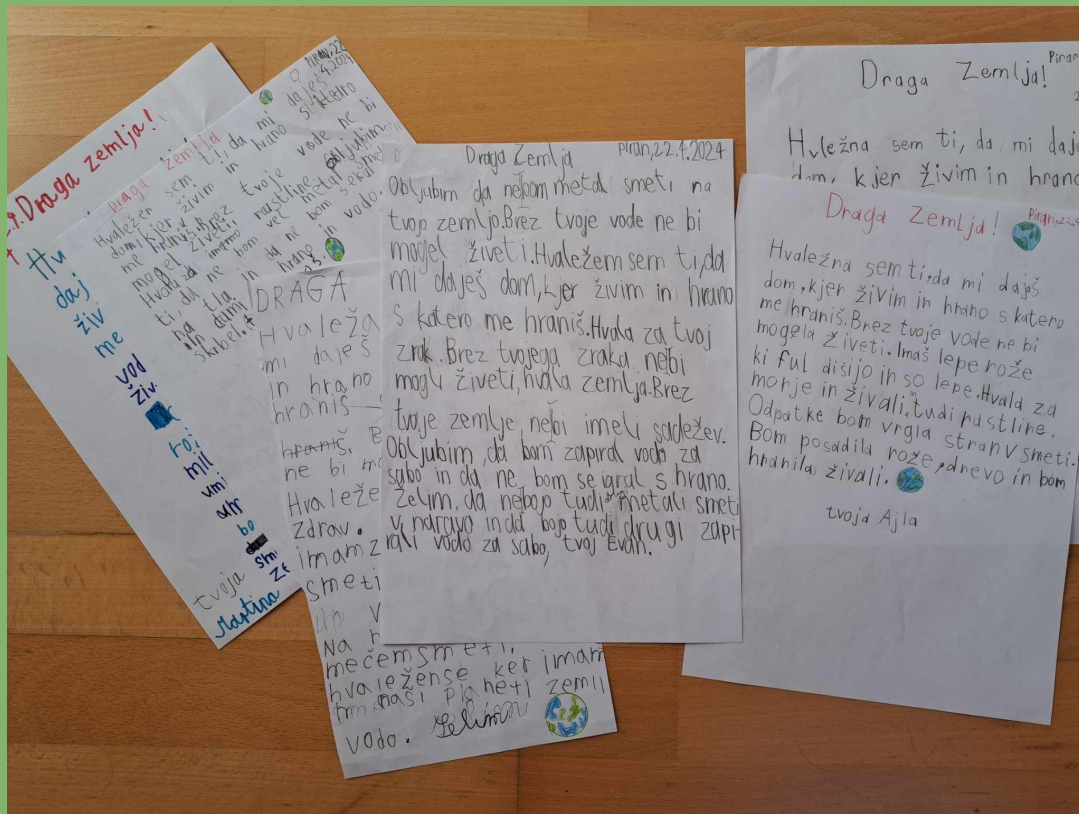 Draga zemlja!
Hv
daj
živ
me
vod
živ
tvoja
Martina
PIRAN, 22.
4.2024
Draga zemlja
Hvaležen sem ti, da mi daješ
dom, kjer živim in hrano s katero
me hraniš. Brez tvoje vode ne bi
mogel živeti.
Hvala za imamo rastline. Obljubim
ti, da ne bom več metal smeti
na tla in da ne bom sekal
in hrane in vodo.
DRAGA
Hvaleža
mi daješ
in hrano
hraniš
hraniš. B
ne bi mo
Hvaleže
zdrav.
imam z
smeti
Na
mečem smeti,
hvaležense ker imam
naši planeti zemli
vodo. Selina
Draga Zemlja Piran, 22.4.2024
Obljubim da nebom metal smeti na
tvojo zemljo. Brez tvoje vode ne bi
mogel živeti. Hvaležem sem ti, da
mi daješ dom, kjer živim in hrano
s katero me hraniš. Hvala za tvoj
zrak. Brez tvojega zraka nebi
mogli živeti, hvala zemlja. Brez
tvoje zemlje nebi imeli sadežev.
Obljubim, da bom zapiral vodo za
sabo in da ne bom se igral s hrano.
Želim, da nebojo tudi metali smeti
v naravo in da bojo tudi drugi zapi-
rali vodo za sabo, tvoj Evan.
Draga Zemlja! Piran
Hvležna sem ti, da mi daje
dom, kjer živim in hrano
Draga Zemlja! Piran, 22.4
Hvaležna sem ti, da mi daješ
dom, kjer živim in hrano s katero
me hraniš. Brez tvoje vode ne bi
mogela živeti. Imaš lepe rože
ki ful dišijo in so lepe. Hvala za
morje in živali, tudi rastline.
Odpatke bom vrgla stran v smeti.
Bom posadila rože, drevo in bom
hranila živali.
tvoja Ajla